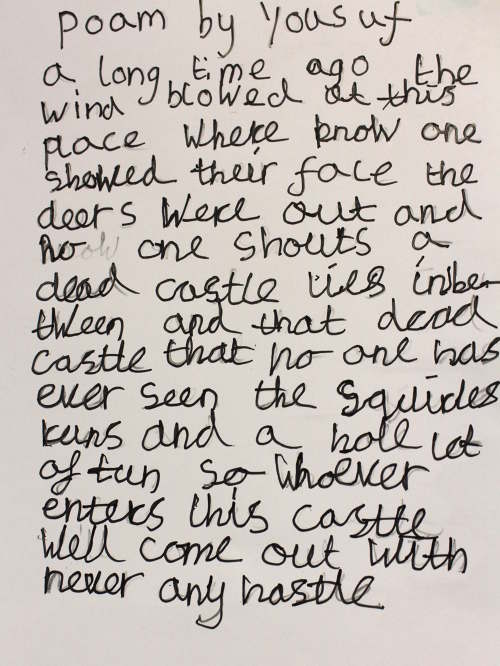 poam by Yousuf
a long time ago the
wind blowed at this
place where know one
showed their face the
deers were out and
no one shouts a
dead castle lies inbe
tween and that dead
castle that no one has
ever seen the squirles
runs and a hole lot
of fun so whoever
enters this castle
well come out with
never any hastle